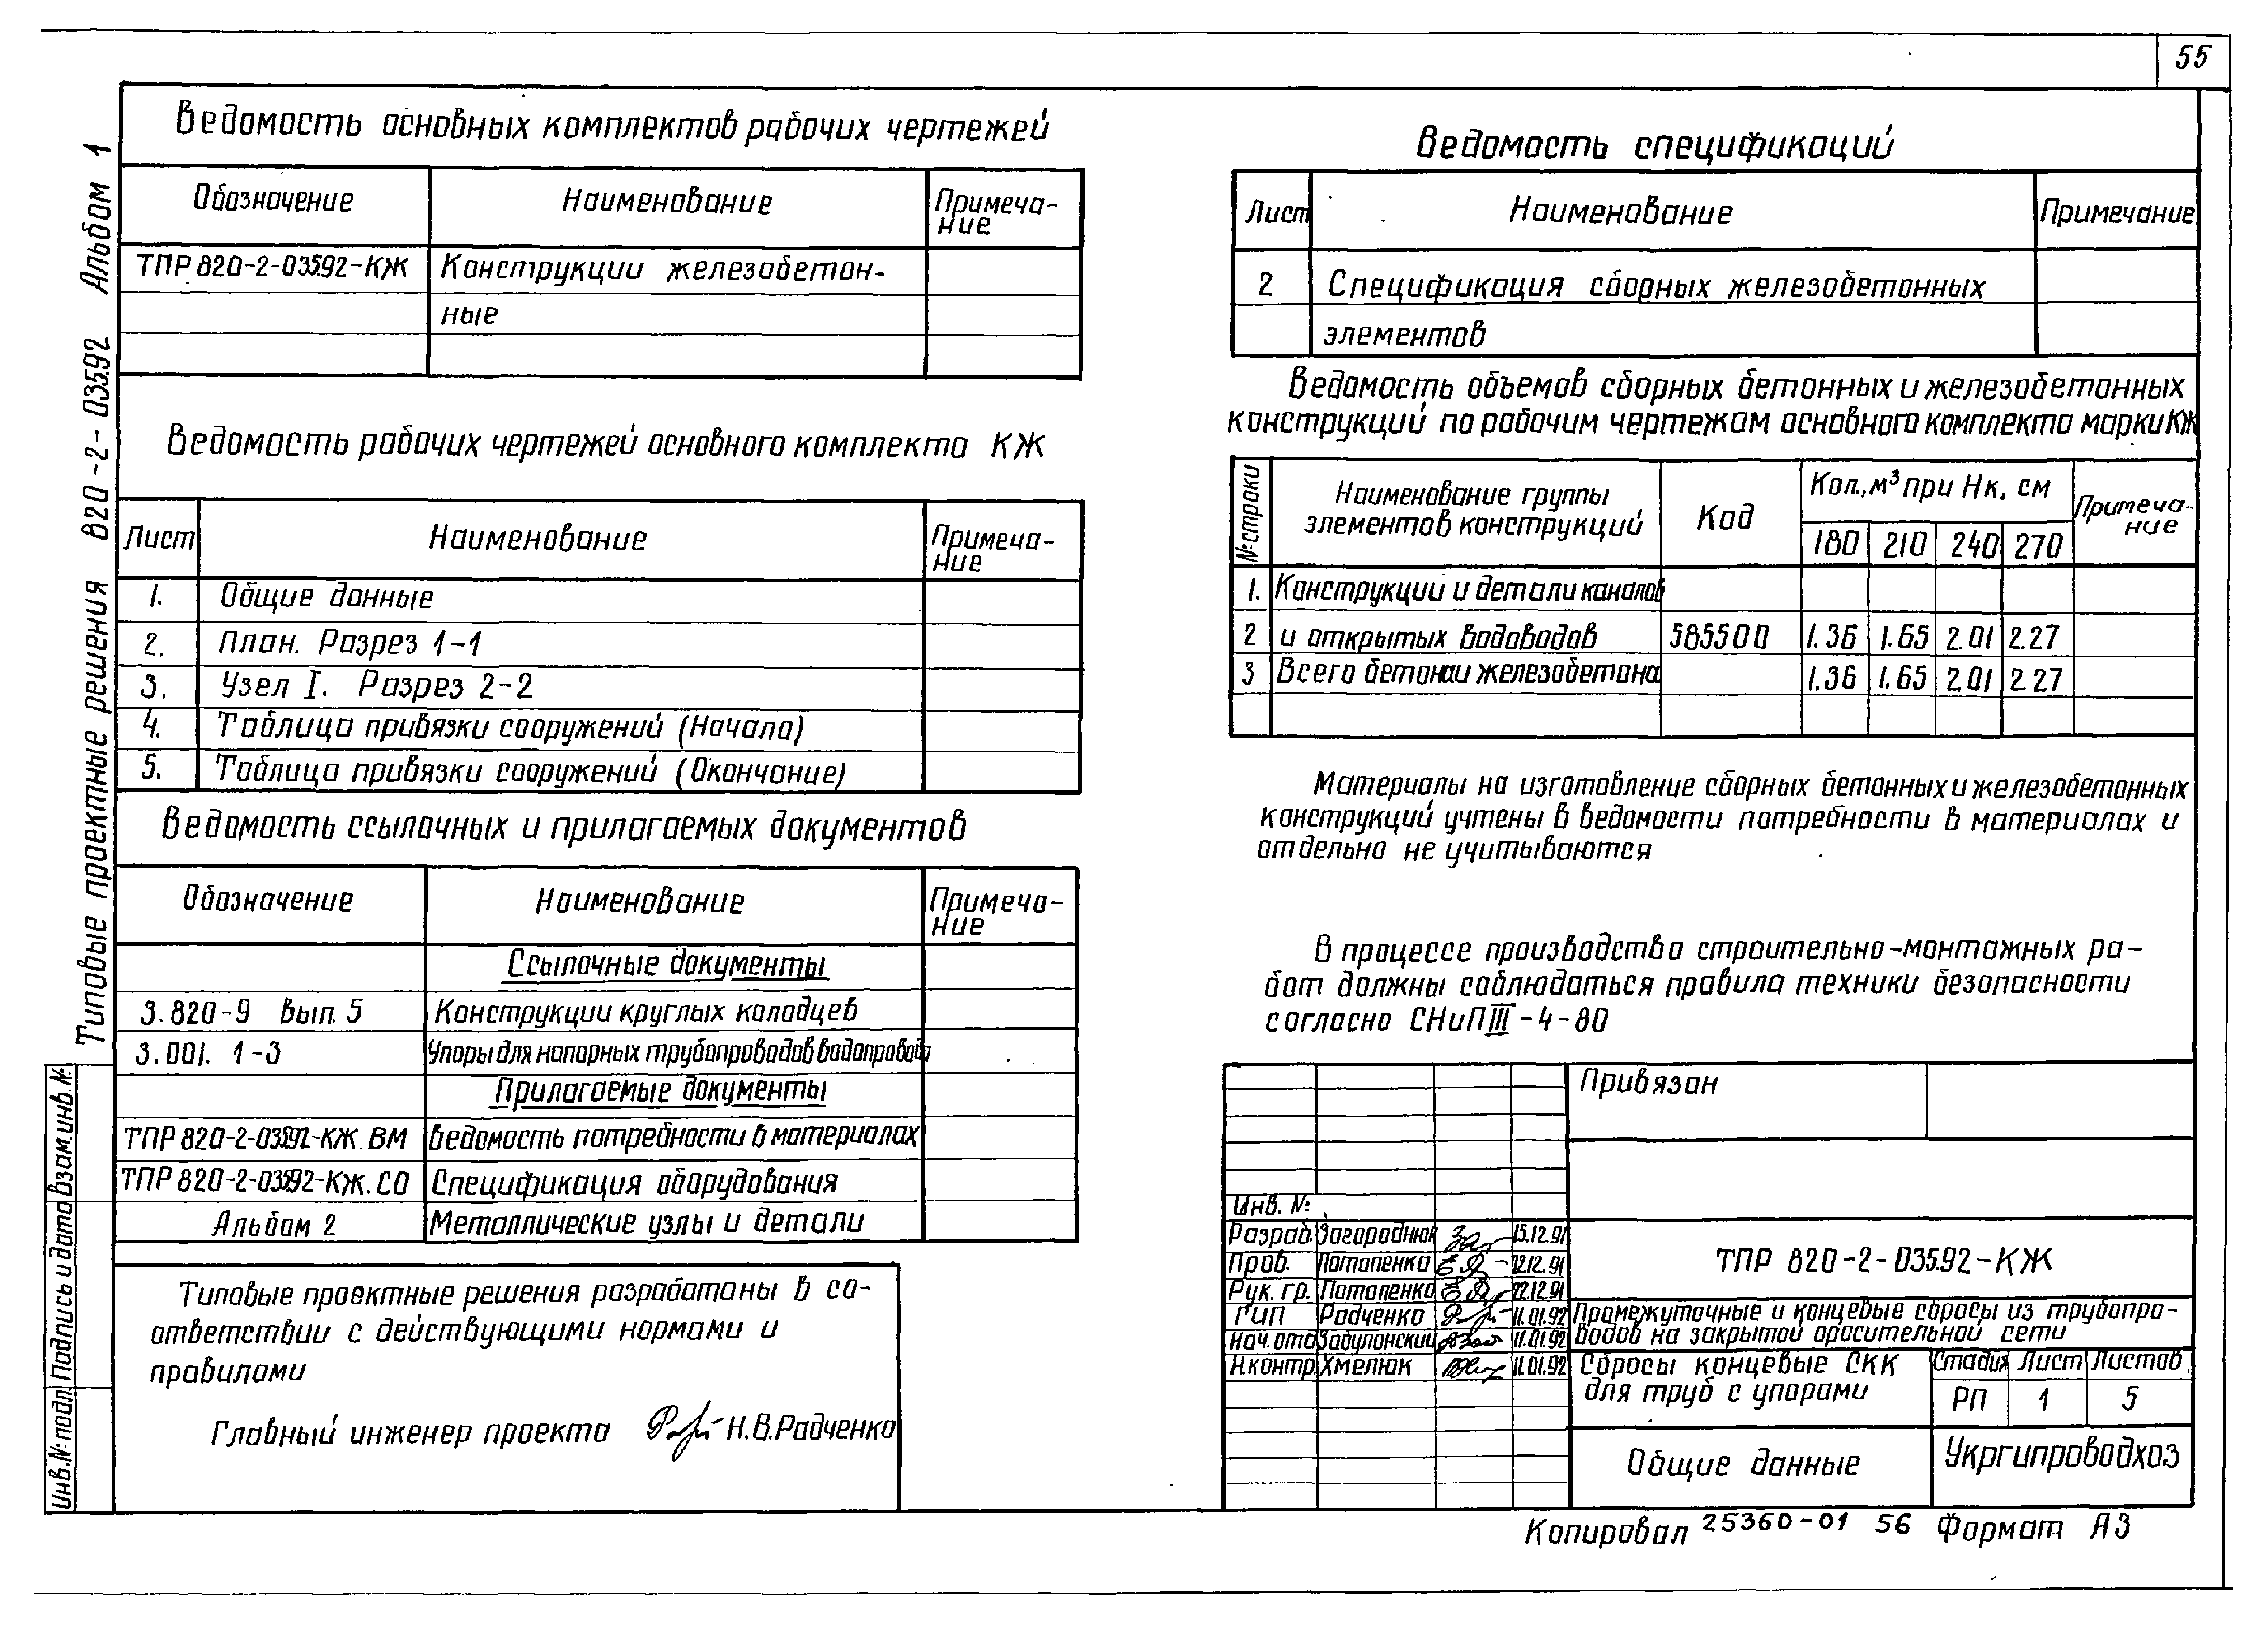 55
Типовые проектные решения 820-2-03592 Альбом 1
Ведомость основных комплектов рабочих чертежей
Обозначение Наименование Примеча-
ние
ТПР 820-2-03592-КЖ Конструкции железобетон-
ные
Ведомость рабочих чертежей основного комплекта КЖ
Лист Наименование Примеча-
ние
1. Общие данные
2. План. Разрез 1-1
3. Узел I. Разрез 2-2
4. Таблица привязки сооружений (Начало)
5. Таблица привязки сооружений (Окончание)
Ведомость ссылочных и прилагаемых документов
Обозначение Наименование Примеча-
ние
Ссылочные документы
3.820-9 Вып. 5 Конструкции круглых колодцев
3.001. 1-3 Упоры для напорных трубопроводов водопровода
Прилагаемые документы
ТПР 820-2-03592-КЖ. ВМ Ведомость потребности в материалах
ТПР 820-2-03592-КЖ. СО Спецификация оборудования
Альбом 2 Металлические узлы и детали
Типовые проектные решения разработаны в со-
ответствии с действующими нормами и
правилами
Главный инженер проекта Н.В.Радченко
Инв.№ подл. Подпись и дата Взам.инв.№
Ведомость спецификаций
Лист Наименование Примечание
2 Спецификация сборных железобетонных
элементов
Ведомость объемов сборных бетонных и железобетонных
конструкций по рабочим чертежам основного комплекта марки КЖ
№ строки Наименование группы элементов конструкций Код Кол.,м³ при Нк, см Примеча-
ние
180 210 240 270
1. Конструкции и детали каналов
2 и открытых водоводов 585500 1.36 1.65 2.01 2.27
3 Всего бетона и железобетона 1.36 1.65 2.01 2.27
Материалы на изготовление сборных бетонных и железобетонных
конструкций учтены в ведомости потребности в материалах и
отдельно не учитываются
В процессе производства строительно-монтажных ра-
бот должны соблюдаться правила техники безопасности
согласно СНиП III-4-80
Привязан
Инв. №:
Разраб. Загороднюк 15.12.91
Пров. Потапенко 22.12.91
Рук. гр. Потапенко 22.12.91
ГИП Радченко 11.01.92
Нач. отд Забулонский 11.01.92
Н.контр. Хмелюк 11.01.92
ТПР 820-2-03592-КЖ
Промежуточные и концевые сбросы из трубопро-
водов на закрытой оросительной сети
Сбросы концевые СКК
для труб с упорами
Стадия Лист Листов
РП 1 5
Общие данные
Укргипроводхоз
Копировал 25360-01 56 Формат А3